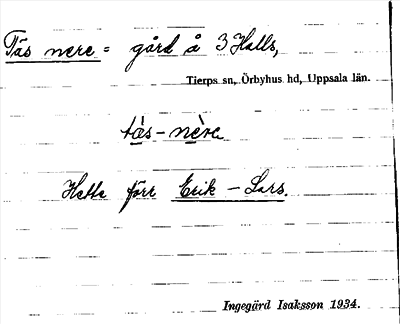 Täs nere = gård å 3 Halls,
Tierps sn, Örbyhus hd, Uppsala län.
tás - nère
Hette förr Erik - Lars
Ingegärd Isaksson 1934.